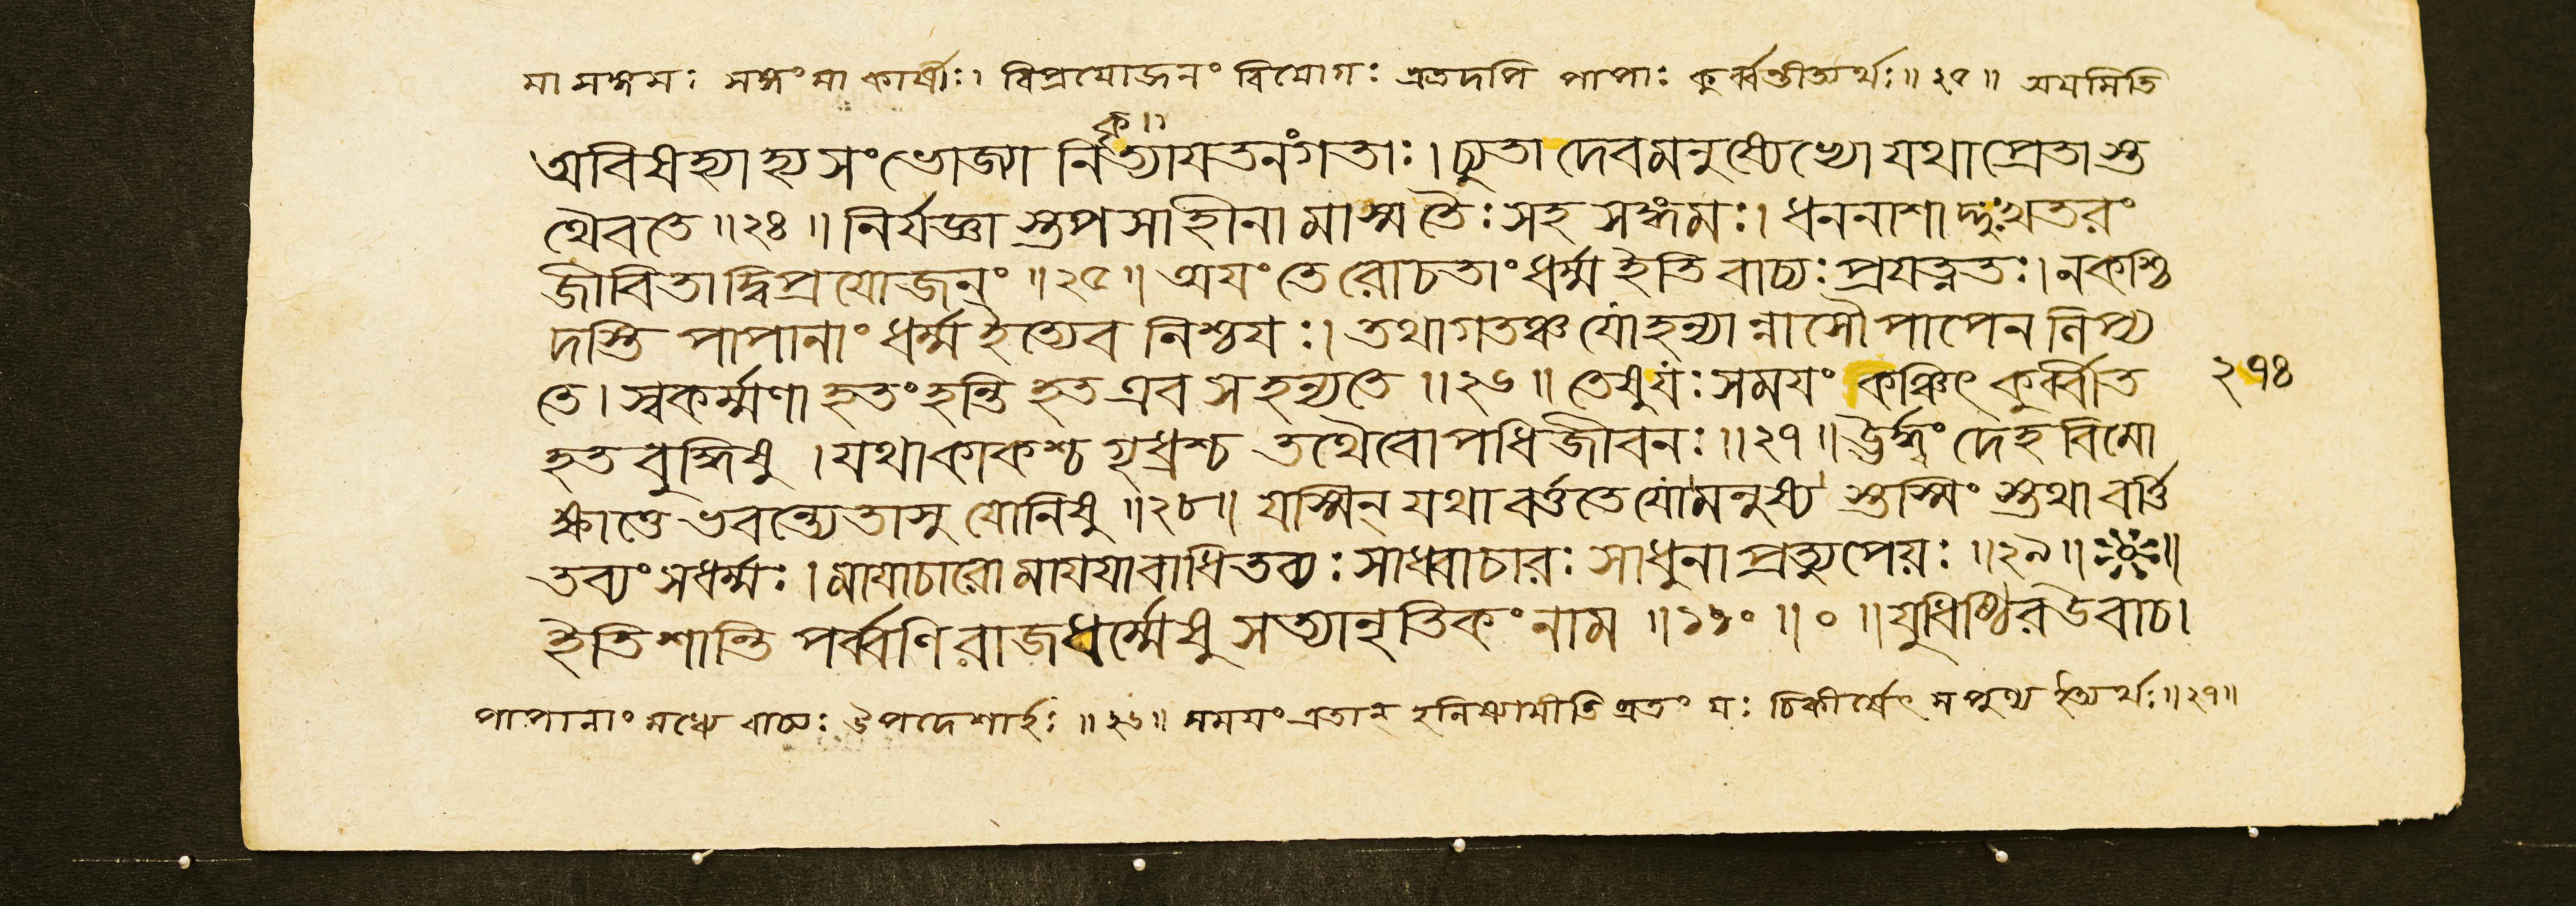 মা সঙ্গমঃ সঙ্গং মা কার্ষীঃ। বিপ্রয়োজনং বিয়োগঃ এতদপি পাপাঃ কুর্ব্বন্তীত্যর্থঃ॥২৫॥ অয়মিতি
ক॥
অবিষহ্যা হ্যসংভোজ্যা নিকৃত্যাযতনংগতাঃ। চ্যুতা দেবমনুষ্যেভ্যো যথাপ্রেতাস্ত
থৈবতে॥২৪॥ নির্যজ্ঞা স্তপসাহীনা মাস্মতৈঃ সহ সঙ্গমঃ। ধননাশাদ্দুঃখতরং
জীবিতাদ্বিপ্রযোজনং॥২৫॥ অযংতে রোচতাংধর্ম্ম ইতি বাচ্যঃ প্রযত্নতঃ। নকশ্চি
দস্তি পাপানাং ধর্ম্ম ইত্যেব নিশ্চযঃ। তথাগতঞ্চ যোহন্যান্নাসৌ পাপেন লিপ্য
তে। স্বকর্ম্মণা হতংহন্তি হত এব স হন্যতে॥২৬॥ তেষুযঃ সমযং কঞ্চিৎ কুর্ব্বীত
হত বুদ্ধিষু। যথাকাকশ্চ গৃধ্রশ্চ তথৈবোপধিজীবনঃ॥২৭॥ ঊর্দ্ধং দেহ বিমো
ক্ষাত্তে ভবন্ত্যেতাসু যোনিষু॥২৮॥ যস্মিন্ যথা বর্ত্ততে যোমনুষ্য স্তস্মিং স্তথা বর্ত্তি
তব্যং সধর্ম্মঃ। মাযাচারো মাযযাবাধিতব্যঃ সাধ্বাচারঃ সাধুনা প্রত্যুপেয়ঃ॥২৯॥
২৭৪
ইতি শান্তি পর্ব্বণি রাজধর্ম্মেষু সত্যানৃতিকং নাম ॥১১০॥০॥ যুধিষ্ঠিরউবাচ।
পাপানাং মধ্যে বাচ্যঃ উপদেশার্হঃ॥২৬॥ সময়ং এতান হনিষ্যামীতি ব্রতং যঃ চিকীর্ষেৎ স পুণ্য ইত্যর্থঃ॥২৭॥